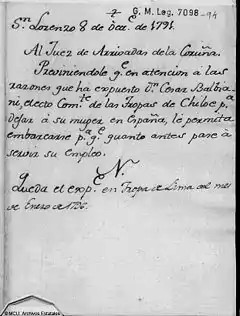 G. M. Leg. 7098 -94
Sn. Lorenzo 8 de Dre. de 1791.
Al Juez de Arrivadas de la Coruña.
Previniendole qe. en atencion á las
razones que ha expuesto Dn. Cesar Balbia-
ni, electo Comte. de las Tropas de Chiloe pa.
dejar á su muger en España, le permita
embarcarse pa. qe. quanto antes pase à
servir su empleo.
N.
Queda el expte. en Tropa de Lima del mes
de Enero de
©MCU. Archivos Estatales